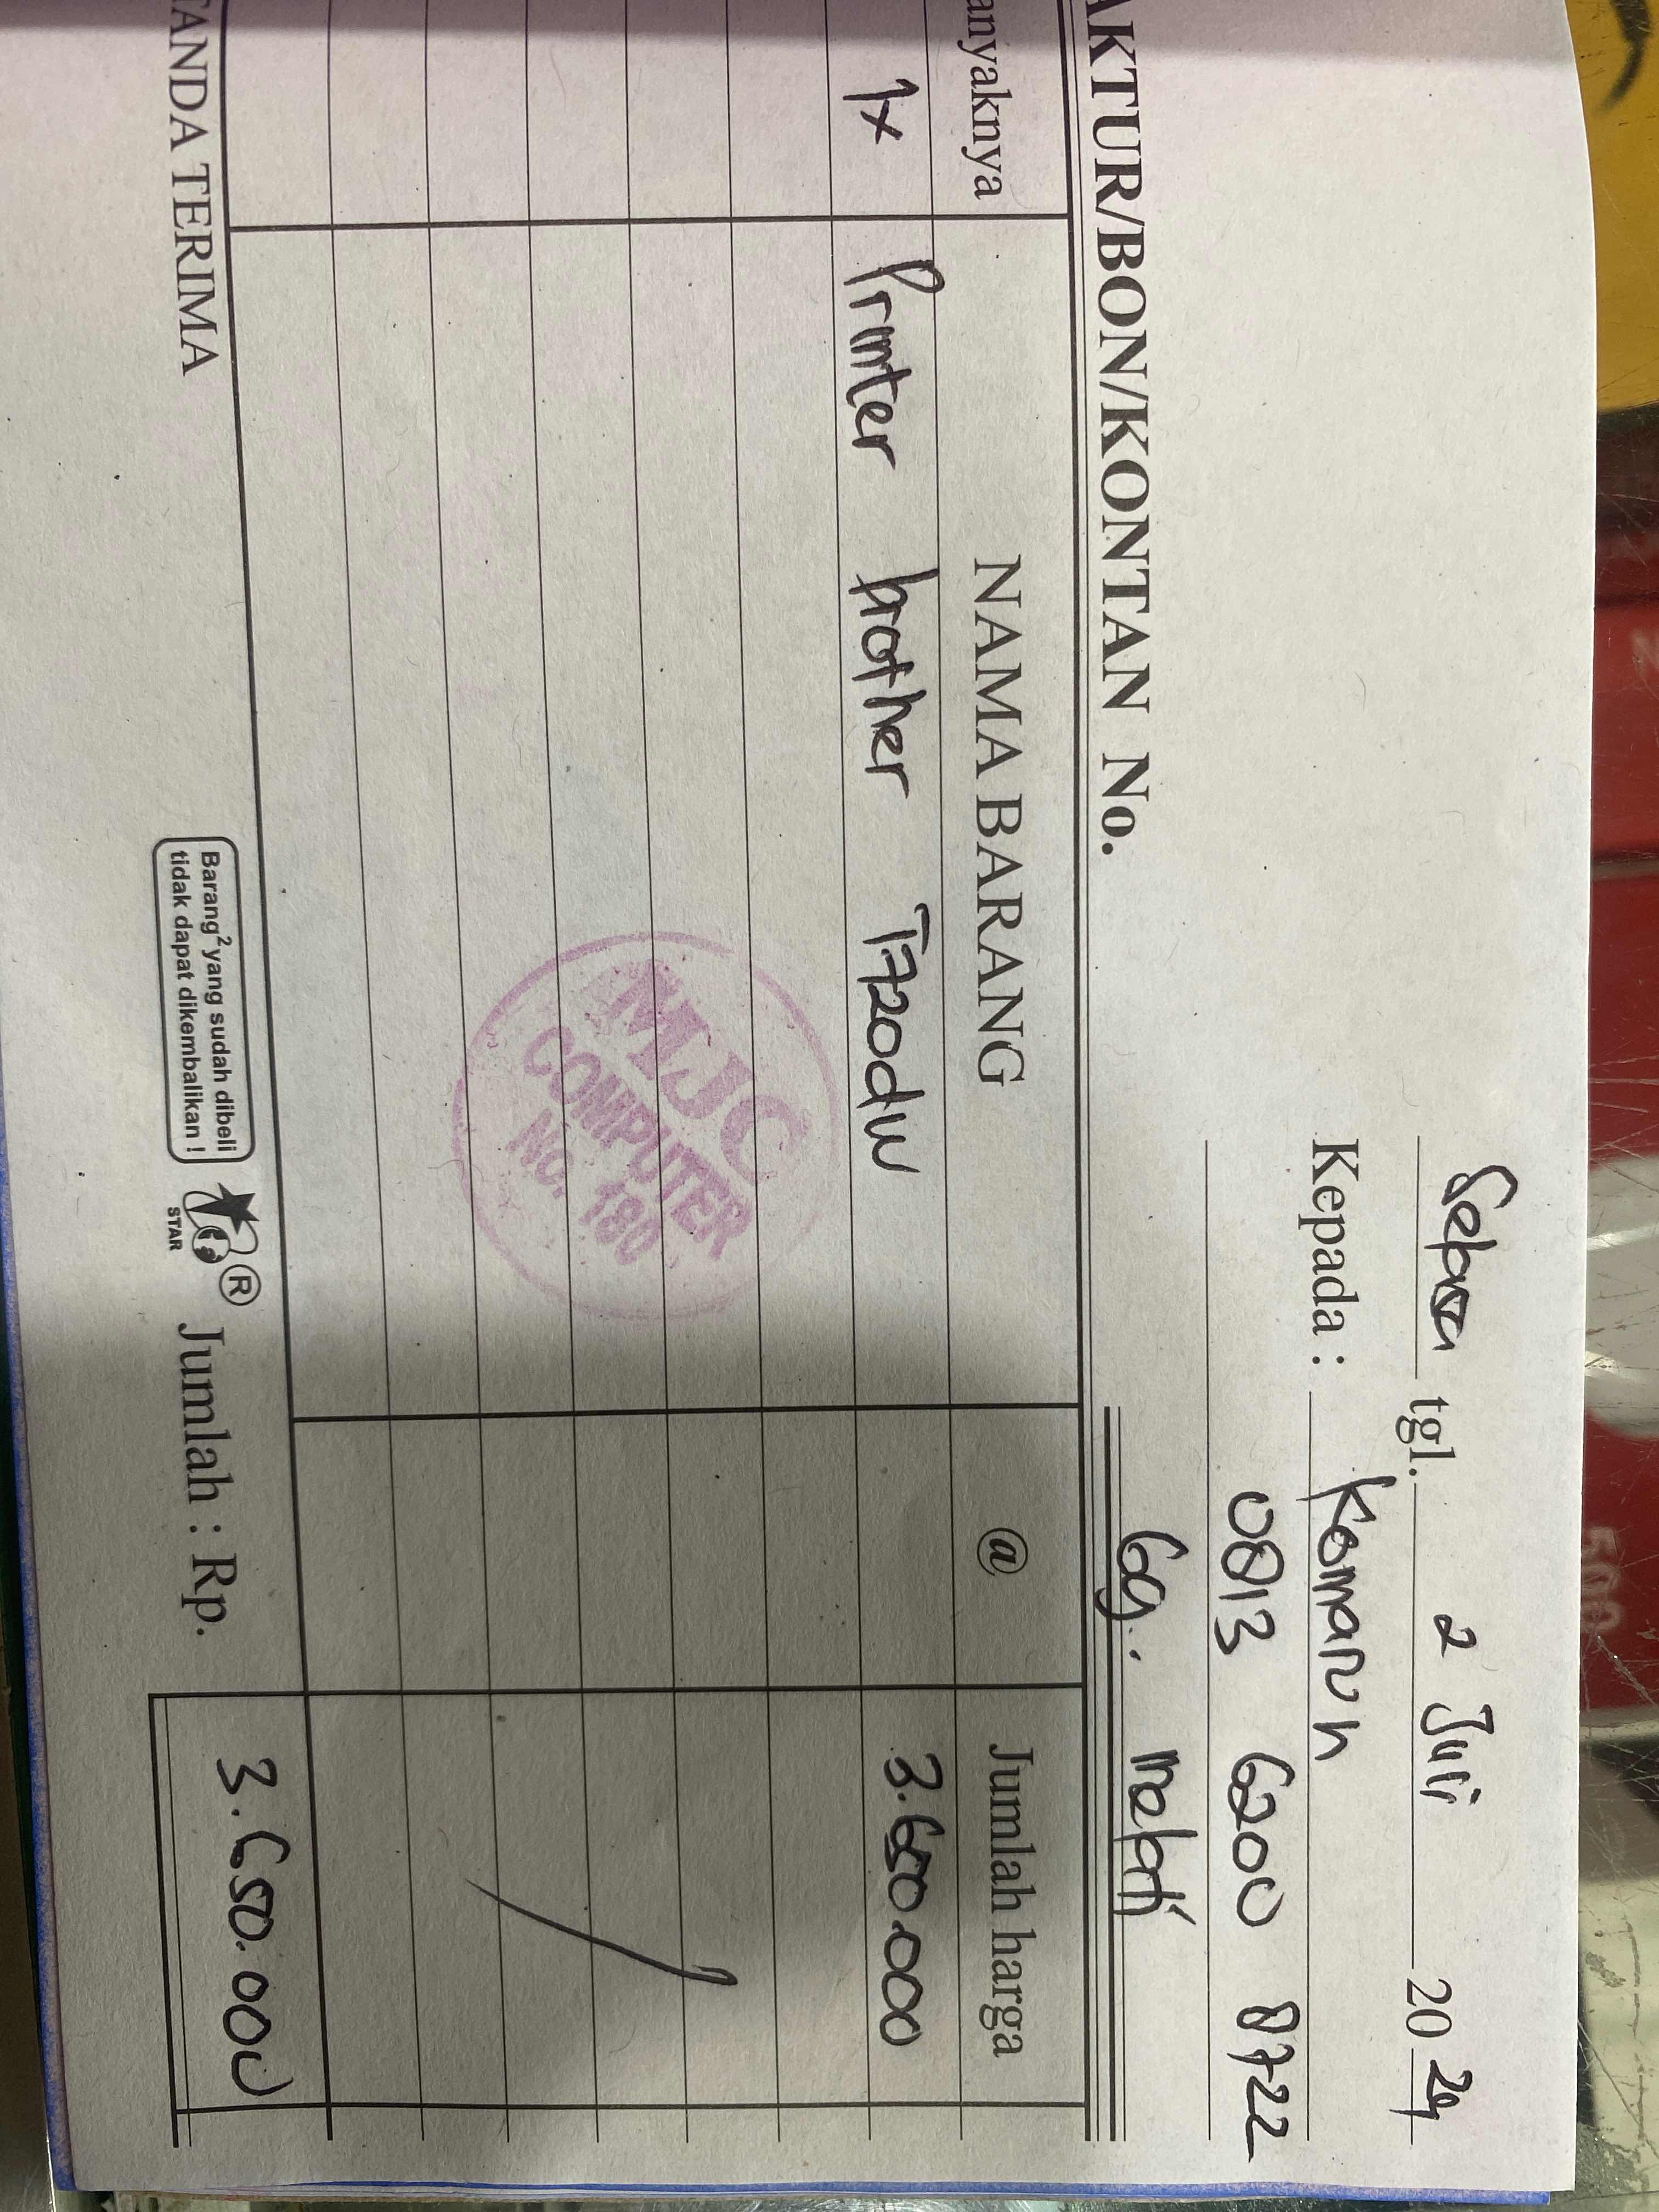 tgl. 2 Juli 2024
Kepada : Komaruh
0813 6200 8722
AKTUR/BON/KONTAN No.
anyaknya NAMA BARANG @ Jumlah harga
1x Printer brother T720dw 3.650.000
MJC
COMPUTER
No. 180
TANDA TERIMA
Barang² yang sudah dibeli
tidak dapat dikembalikan !
®
STAR
Jumlah : Rp. 3.650.000